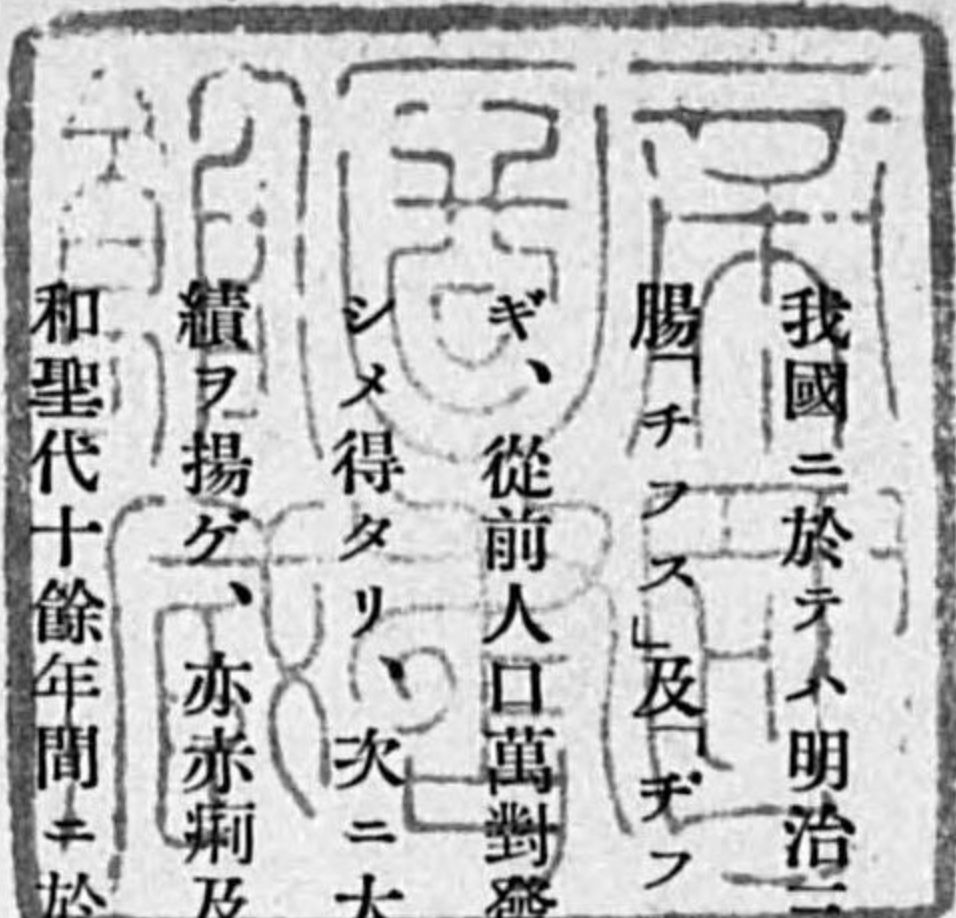 我國ニ於テハ明治
腸「チフス」及「ヂフ
ギ、從前人口萬對發
シメ得タリ、次ニ大
績ヲ揚ゲ、亦赤痢及
和聖代十餘年間ニ於